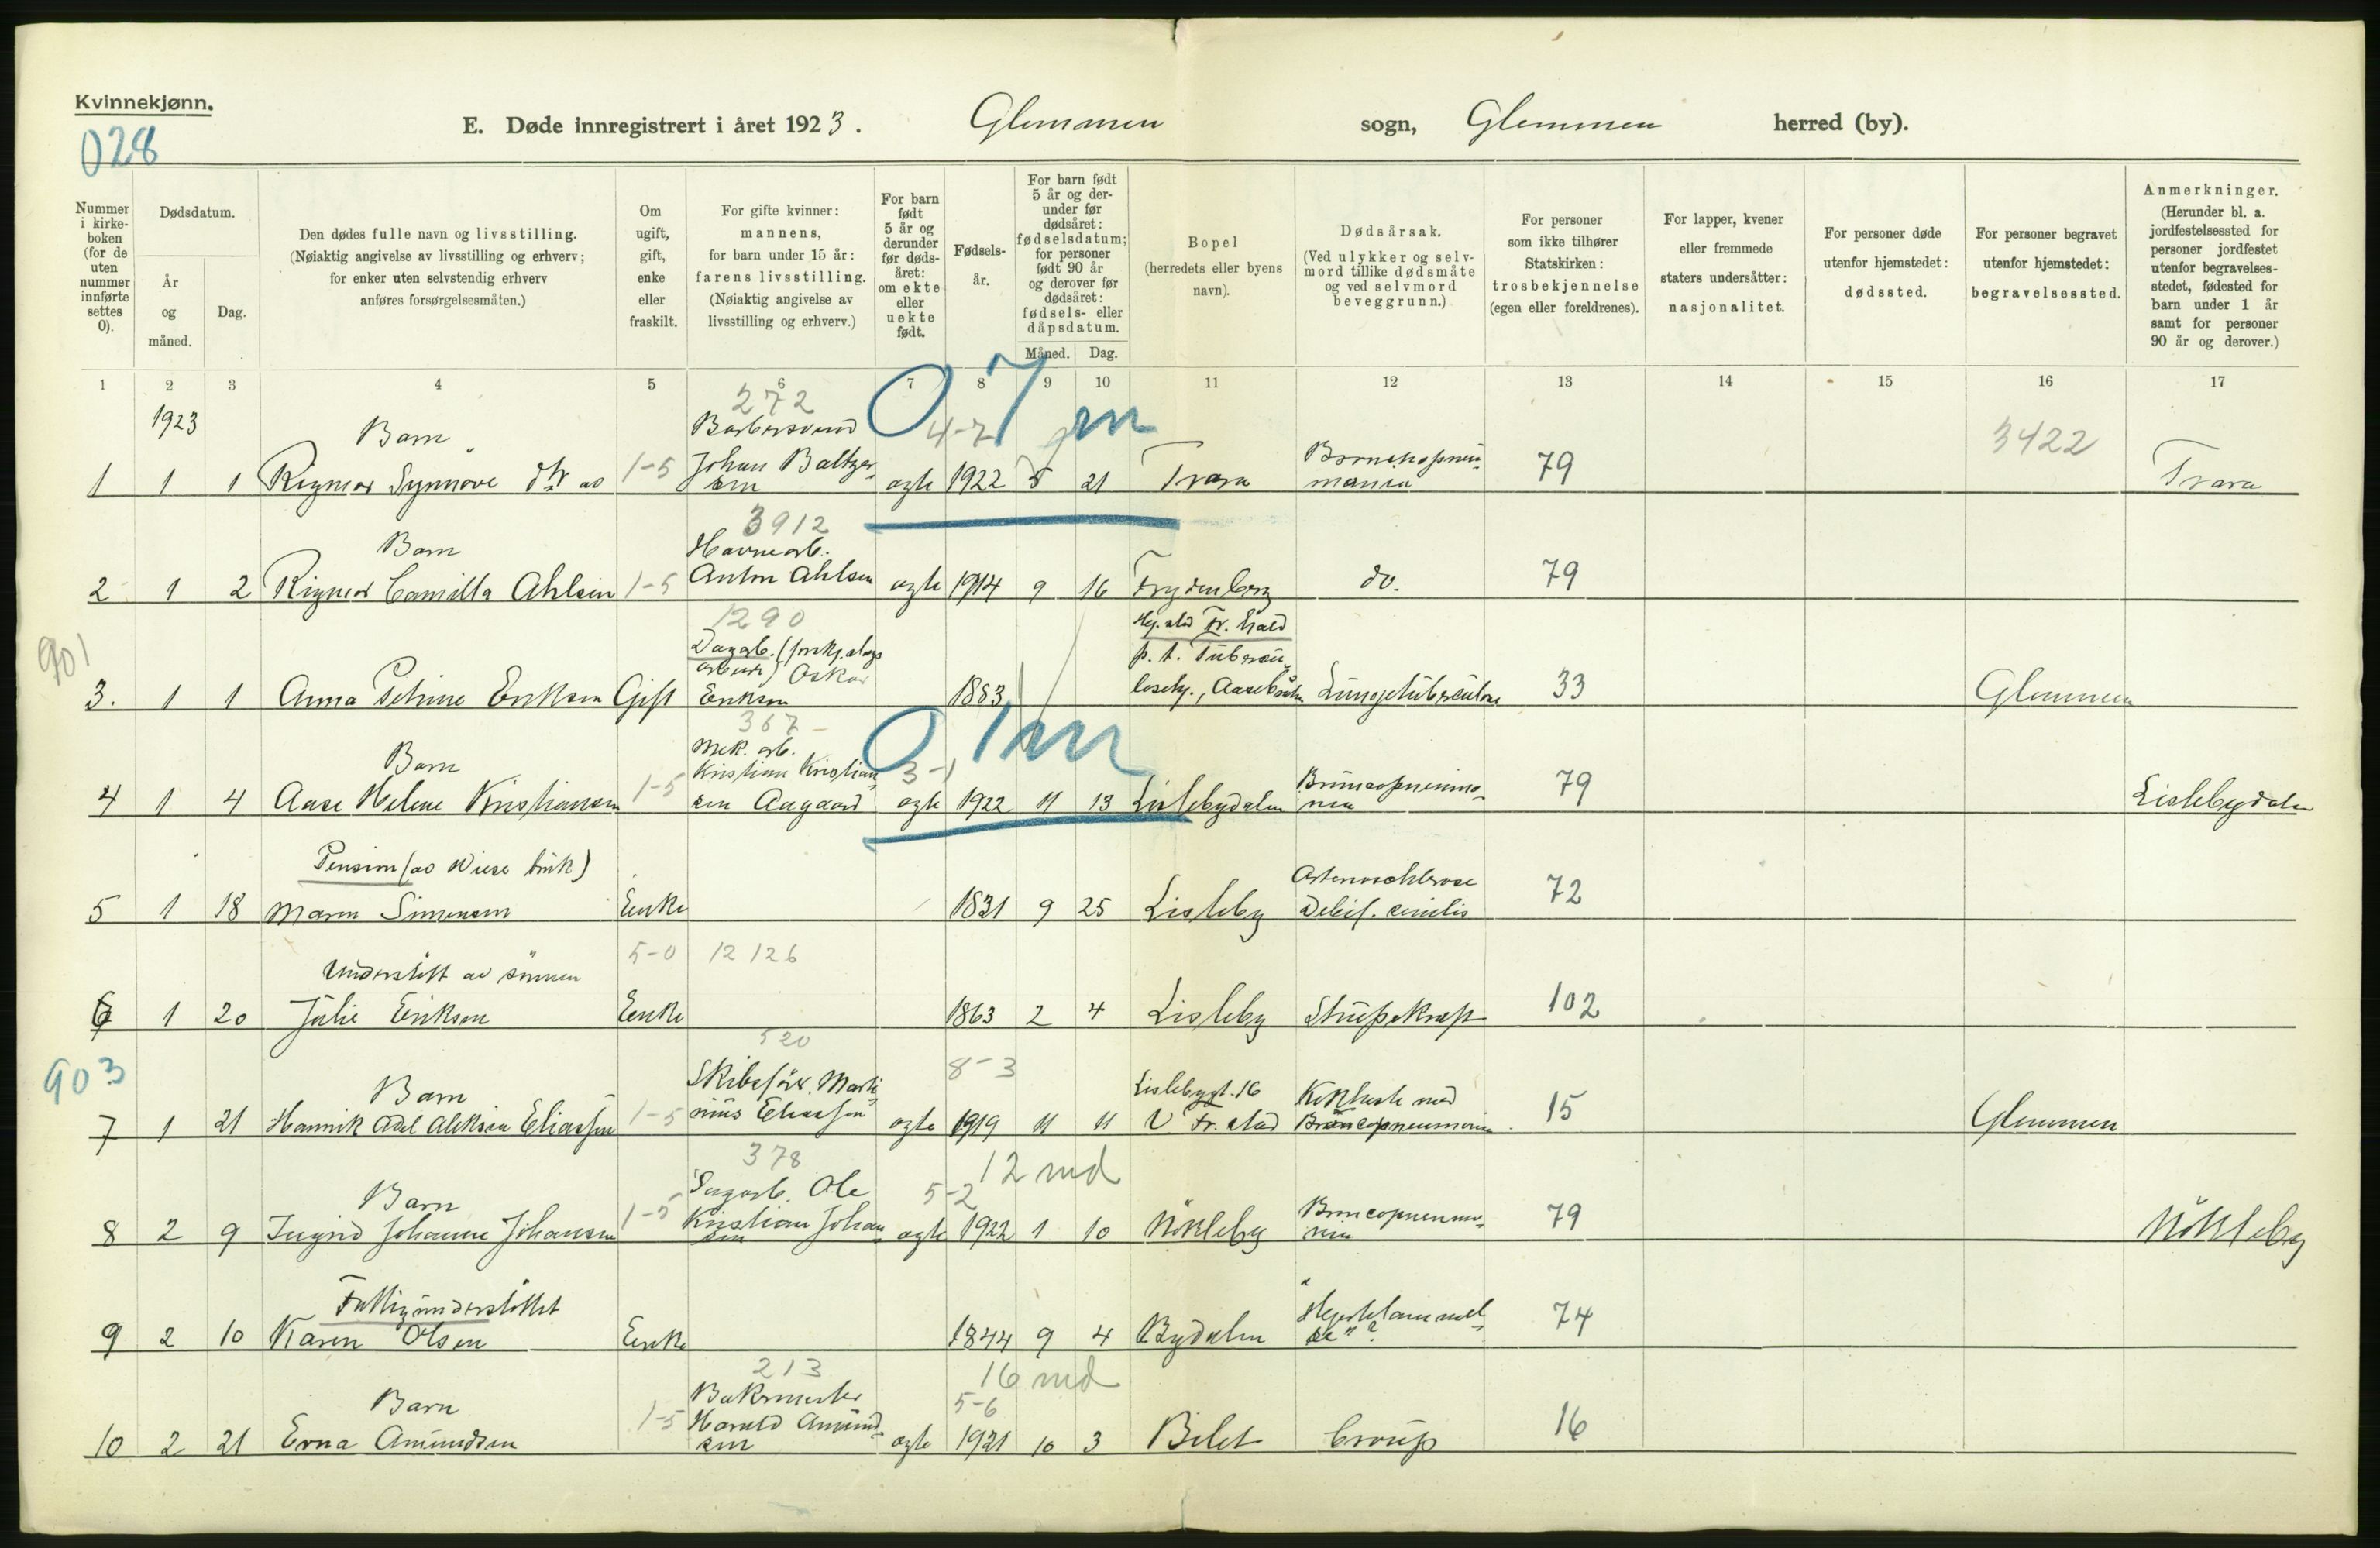 Kvinnekjønn.
028
E. Døde innregistrert i året 1923. Glemmen sogn, Glemmen herred (by).
Nummer i kirke-boken (for de uten nummer innførte settes 0).
Dødsdatum.
År og måned.
Dag.
Den dødes fulle navn og livsstilling.
(Nøiaktig angivelse av livsstilling og erhverv;
for enker uten selvstendig erhverv
anføres forsørgelsesmåten.)
Om ugift, gift, enke eller fraskilt.
For gifte kvinner:
mannens,
for barn under 15 år:
farens livsstilling.
(Nøiaktig angivelse av
livsstilling og erhverv.)
For barn født 5 år og derunder før døds-året: om ekte eller uekte født.
Fødsels-år.
For barn født 5 år og der-under før dødsåret: fødselsdatum; for personer født 90 år og derover før dødsåret: fødsels- eller dåpsdatum.
Måned. Dag.
Bopel
(herredets eller byens navn).
Dødsårsak.
(Ved ulykker og selv-mord tillike dødsmåte og ved selvmord beveggrunn.)
For personer
som ikke tilhører
Statskirken:
trosbekjennelse
(egen eller foreldrenes).
For lapper, kvener
eller fremmede
staters undersåtter:
nasjonalitet.
For personer døde
utenfor hjemstedet:
dødssted.
For personer begravet
utenfor hjemstedet:
begravelsessted.
Anmerkninger.
(Herunder bl. a. jordfestelsessted for personer jordfestet utenfor begravelses-stedet, fødested for barn under 1 år samt for personer 90 år og derover.)
1 2 3 4 5 6 7 8 9 10 11 12 13 14 15 16 17
1923 Barn 272 07 m
4-7 3422
1 1 1 Rigmor Synnøve dtr av 1-5 Johan Baltzer-sen ægte 1922 5 21 Trara 79 Trara
Barn 3912
Havnearb.
2 1 2 Rigmor Camilla Ahlsen 1-5 Anton Ahlsen ægte 1914 9 16 Frydenberg do. 79
901 1290
Dagarb. Oskar
p. t. Tubercu-
3. 1 1 Anna Petrine Eriksen Gift Eriksen 1883 Lungetuberculose 33 Glemmen
367 01 m
Barn Mek. arb. 3-1
4 1 4 Aase Helene Kristiansen 1-5 Kristian Kristian-sen Aagaard ægte 1922 11 13 Lislebydalen 79 Lislebydalen
Pension (av Wiese bruk)
5 1 18 Maren Simensen Enke 1831 9 25 Lisleby 72
5-0 12126
Understøtt. av sønnen
6 1 20 Julie Eriksen Enke 1863 2 4 Lisleby Strupekræft 102
903 520
8-3
Barn Skibsfør. Marti-
7 1 21 Adel Eliassen 1-5 nius Eliassen ægte 1919 11 11 Lislebygt. 16 V. Fr.stad Kikhoste med Broncopneumonia 15 Glemmen
378 12 md
Barn Ole 5-2
8 2 9 Ingrid Johanne Johansen 1-5 Kristian Johan-sen ægte 1922 1 10 Nökleby Broncopneumo-nia 79 Nökleby
Fattigunderstöttet
9 2 10 Karen Olsen Enke 1844 9 4 Bydalen "Hjertelammel-se"? 74
213 16 md
Barn Bakermester 5-6
10 2 21 Erna Amundsen 1-5 Harald Amund-sen ægte 1921 10 3 Bilet Croup 16